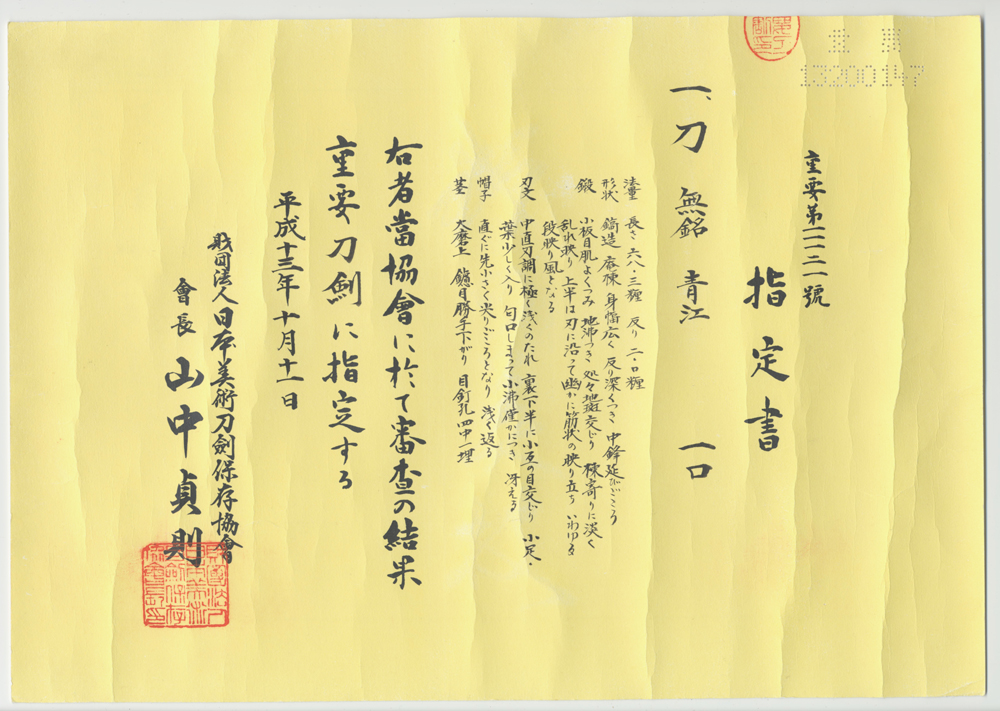 13200147
重要第一一一二一號
指定書
一、刀 無銘 青江 一口
法量 長さ 六八・三糎 反り 二・〇糎
形状 鎬造 庵棟 身幅広く 反り深くつき 中鋒延びごころ
鍛 小板目肌よくつみ 地沸つき 処々地斑交じり 棟寄りに淡く
乱れ映り 上半は刃に沿って幽かに筋状の映り立ち いわゆる
段映り風となる
刃文 中直刃調に極く浅くのたれ 裏下半に小互の目交じり 小足・
葉少しく入り 匂口しまって小沸僅かにつき 冴える
帽子 直ぐに先小さく尖りごころとなり 浅く返る
茎 大磨上 鑢目勝手下がり 目釘孔四中一埋
右者當協會に於て審査の結果
重要刀剣に指定する
平成十三年十月十一日
財団法人日本美術刀劍保存協會
會長 山中貞則